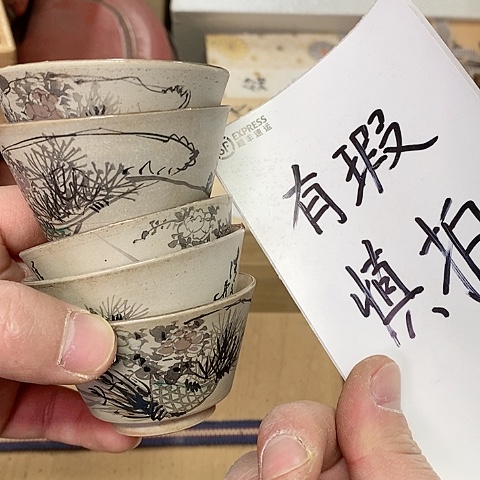 SF EXPRESS
顺丰速运
有瑕
慎拍